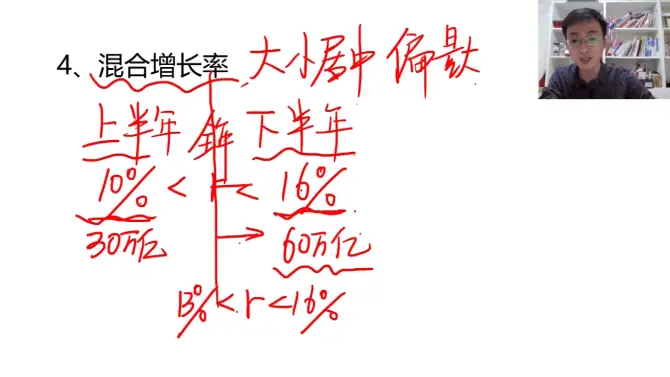 4、混合增长率 大小居中 偏基数
上半年 全年 下半年
10% < r < 16%
30万亿 → 60万亿
13% < r < 16%